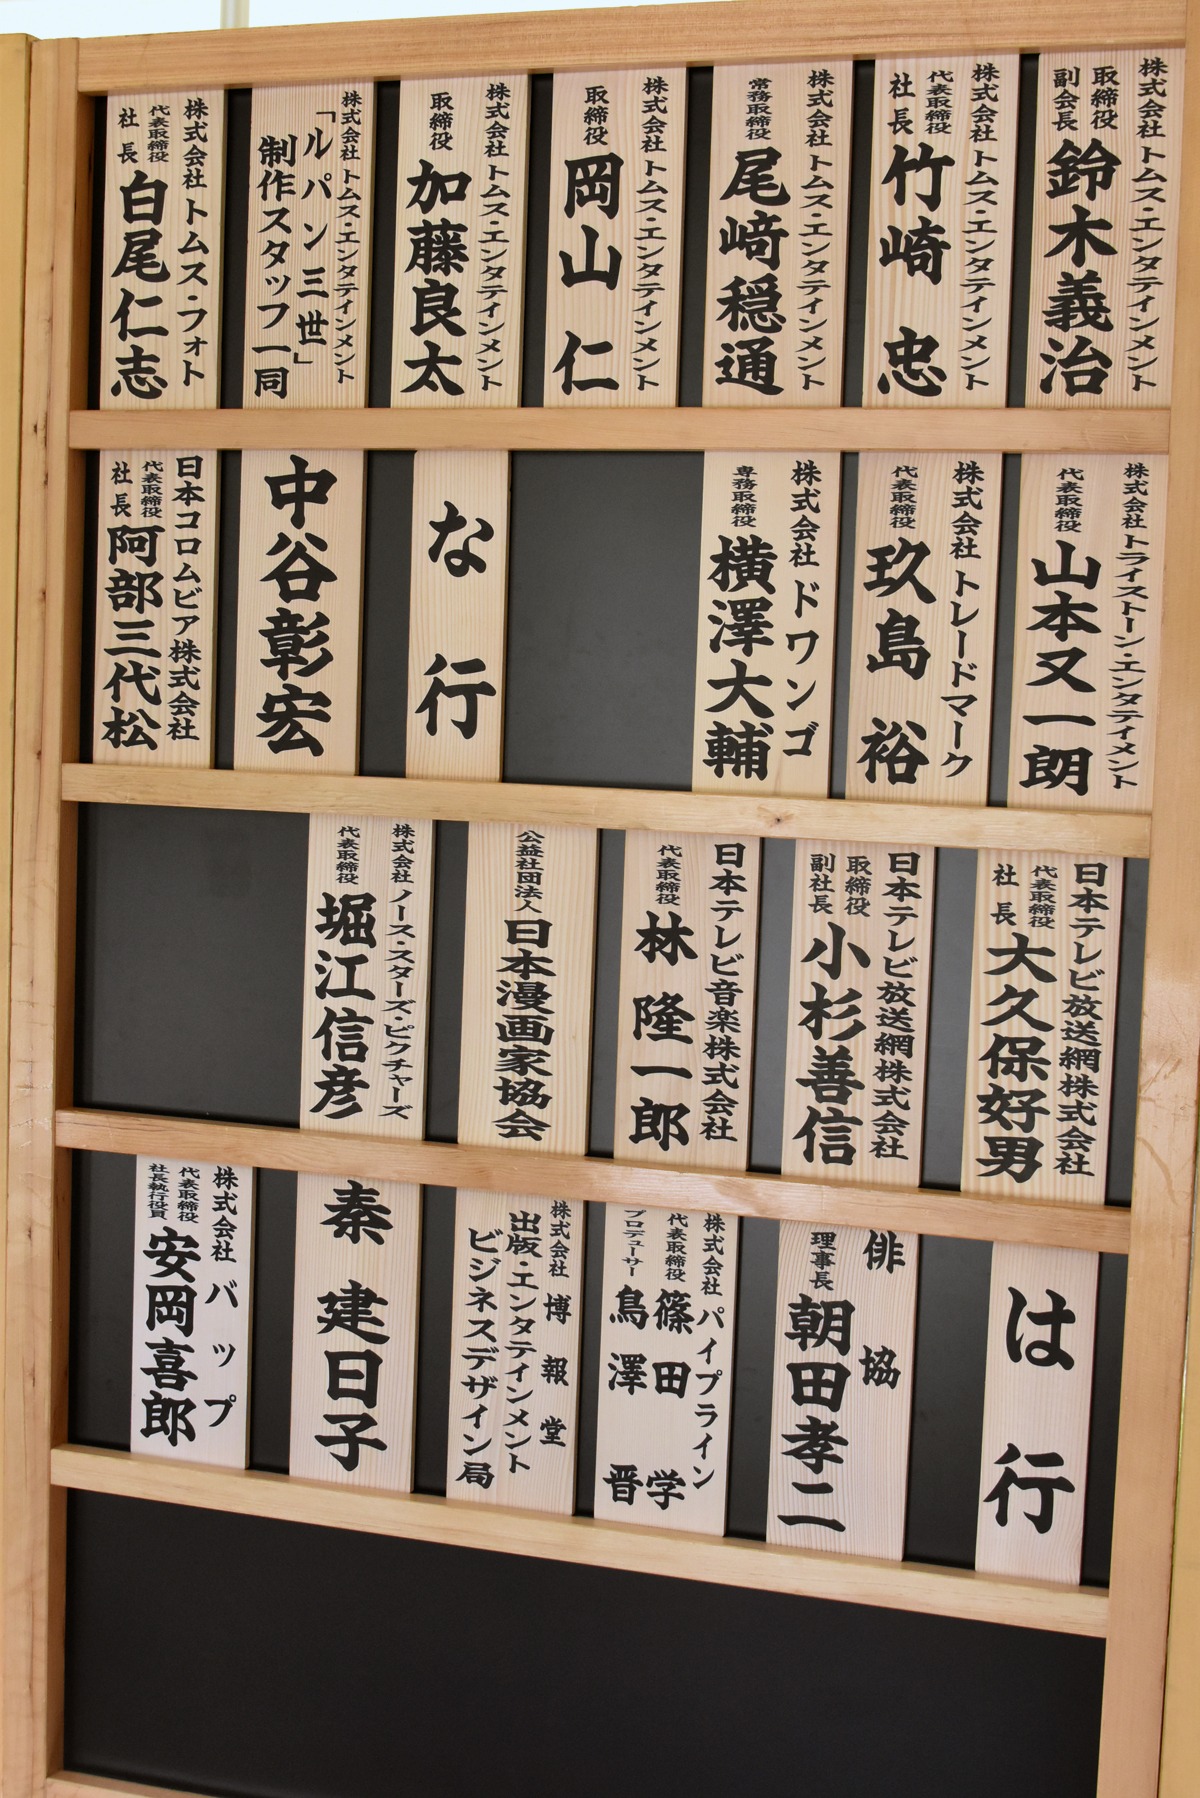 株式会社トムス・エンタテインメント
取締役
副会長
鈴木義治
株式会社トムス・エンタテインメント
代表取締役
社長
竹崎 忠
株式会社トムス・エンタテインメント
常務取締役
尾﨑穏通
株式会社トムス・エンタテインメント
取締役
岡山 仁
株式会社トムス・エンタテインメント
取締役
加藤良太
株式会社トムス・エンタテインメント
「ルパン三世」
制作スタッフ一同
株式会社トムス・フォト
代表取締役
社長
白尾仁志
株式会社トライストーン・エンタテイメント
代表取締役
山本又一朗
株式会社トレードマーク
代表取締役
玖島 裕
株式会社ドワンゴ
専務取締役
横澤大輔
な行
中谷彰宏
日本コロムビア株式会社
代表取締役
社長
阿部三代松
日本テレビ放送網株式会社
代表取締役
社長
大久保好男
日本テレビ放送網株式会社
取締役
副社長
小杉善信
日本テレビ音楽株式会社
代表取締役
林 隆一郎
公益社団法人
日本漫画家協会
株式会社ノース・スターズ・ピクチャーズ
代表取締役
堀江信彦
は行
俳協
理事長
朝田孝二
株式会社パイプライン
代表取締役
篠田 学
プロデューサー
鳥澤 晋
株式会社 博報堂
出版・エンタテインメント
ビジネスデザイン局
秦 建日子
株式会社バップ
代表取締役
社長執行役員
安岡喜郎